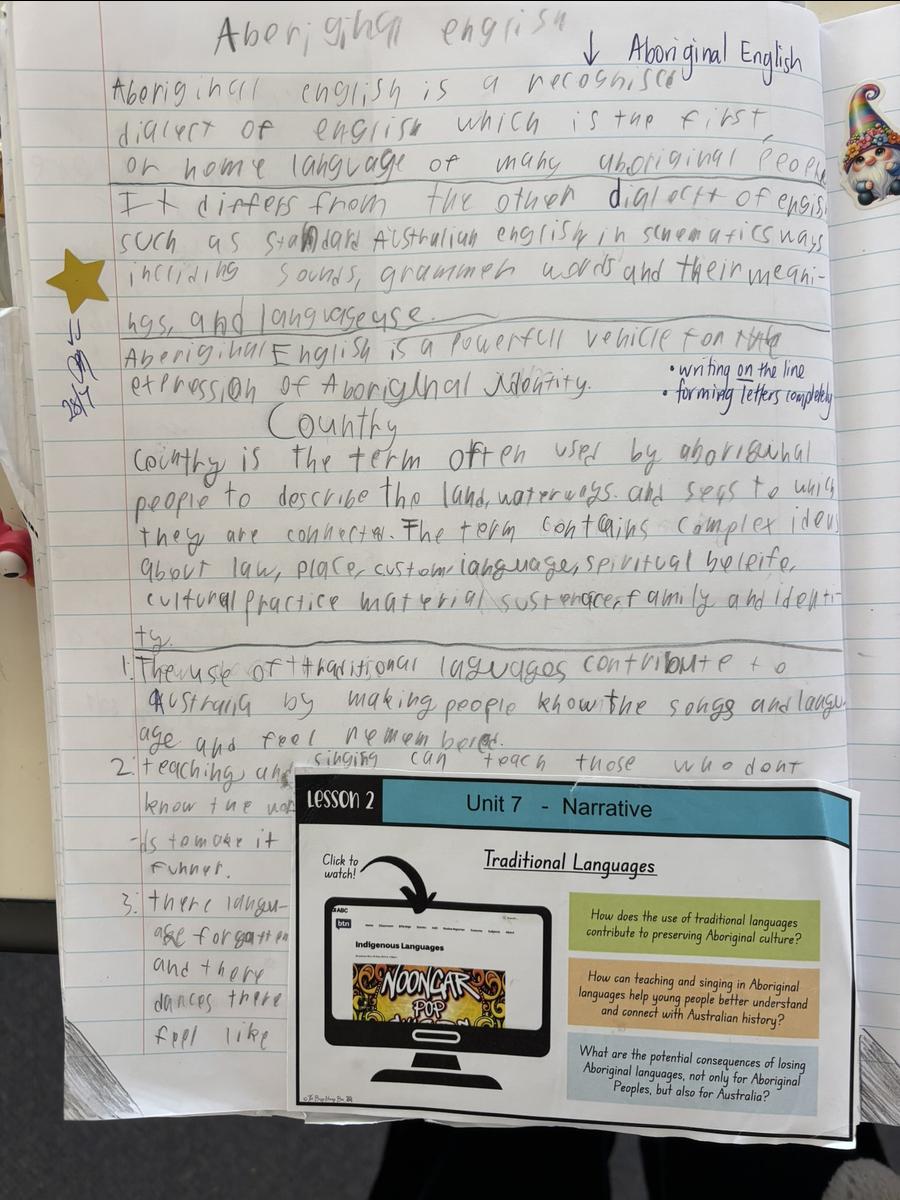 Aboriginal english
↓ Aboriginal English
Aboriginal english is a recognise
dialect of english which is the first,
or home language of many aboriginal People
It differs from the other dialectt of engis
such as standard Australian english in schematics ways
incliding sounds, grammer words and their meani-
ngs, and language use.
Aboriginal English is a Powerfull vehicle for the
expression of Aboriginal identity.
• writing on the line
• forming letters completely
Country
Country is the term often used by aboriginal
people to describe the land, waterways. and seas to which
they are connected. The term contains complex ideas
about law, place, custom, language, spiritual beleife,
cultural practice material sustenance, family and identi-
ty.
1. The use of traditional laguages contribute to
Australia by making people know the songs and langu
age and feel remembered.
2. teaching and singing can teach those who dont
know the wor
-ds to make it
funner.
3. there langu-
age forgatten
and there
dances there
feel like
LESSON 2
Unit 7 - Narrative
Traditional Languages
Click to
watch!
ABC
btn
Indigenous Languages
NOONGAR
POP
How does the use of traditional languages
contribute to preserving Aboriginal culture?
How can teaching and singing in Aboriginal
languages help young people better understand
and connect with Australian history?
What are the potential consequences of losing
Aboriginal languages, not only for Aboriginal
Peoples, but also for Australia?